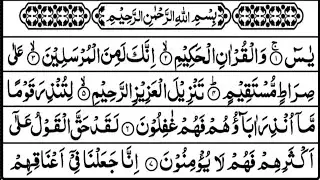 بِسْمِ اللّٰهِ الرَّحْمٰنِ الرَّحِيْمِ
يٰسٓ ۚ ۝۱ وَالْقُرْاٰنِ الْحَكِيْمِ ۙ ۝۲ اِنَّكَ لَمِنَ الْمُرْسَلِيْنَ ۙ ۝۳ عَلٰى
صِرَاطٍ مُّسْتَقِيْمٍ ؕ ۝۴ تَنْزِيْلَ الْعَزِيْزِ الرَّحِيْمِ ۙ ۝۵ لِتُنْذِرَ قَوْمًا
مَّاۤ اُنْذِرَ اٰبَآؤُهُمْ فَهُمْ غٰفِلُوْنَ ۝۶ لَقَدْ حَقَّ الْقَوْلُ عَلٰٓى
اَكْثَرِهِمْ فَهُمْ لَا يُؤْمِنُوْنَ ۝۷ اِنَّا جَعَلْنَا فِيْۤ اَعْنَاقِهِمْ